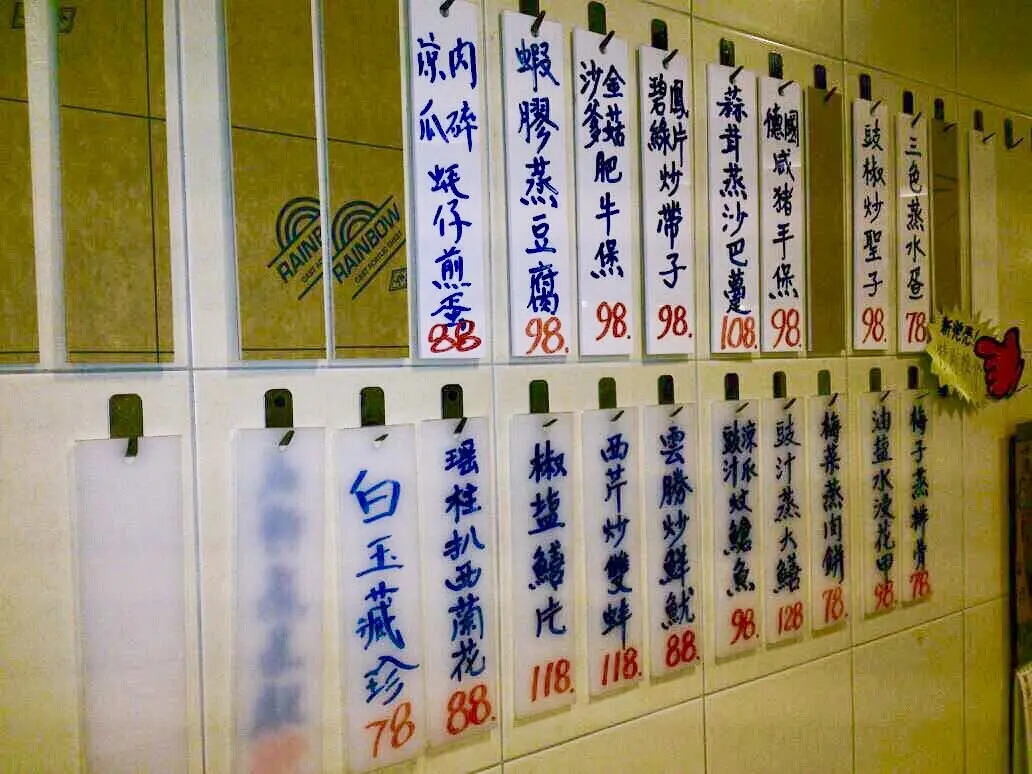 RAINBOW
RAINBOW
涼瓜肉碎蚝仔煎蛋
88
蝦膠蒸豆腐
98.
沙爹金菇肥牛煲
98.
碧綠鳳片炒带子
98.
蒜茸蒸沙巴躉
108
德國咸猪手煲
98
豉椒炒聖子
98.
三色蒸水蛋
78
白玉藏珍
78
瑶柱扒西蘭花
88.
椒盐鱔片
118.
西芹炒雙蚌
118.
雲勝炒鮮魷
88.
豉汁涼瓜蚊鰽魚
98.
豉汁蒸大鱔
128
梅菜蒸肉餅
78.
油盐水浸花甲
98.
梅子蒸排骨
78.